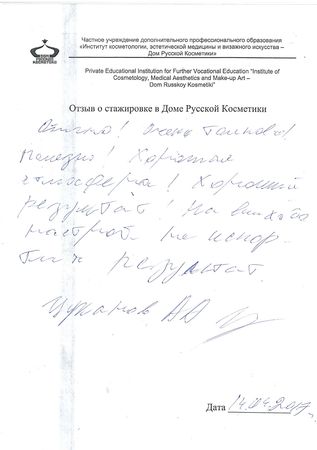 Частное учреждение дополнительного профессионального образования
«Институт косметологии, эстетической медицины и визажного искусства –
Дом Русской Косметики»
Private Educational Institution for Further Vocational Education "Institute of
Cosmetology, Medical Aesthetics and Make-up Art –
Dom Russkoy Kosmetiki"
Отзыв о стажировке в Доме Русской Косметики
Отлично! Очень
Полезно! Хорошая
атмосфера! Хороший
результат! На
настрой не испор-
результат.
АД
Дата 14.04.2017г.